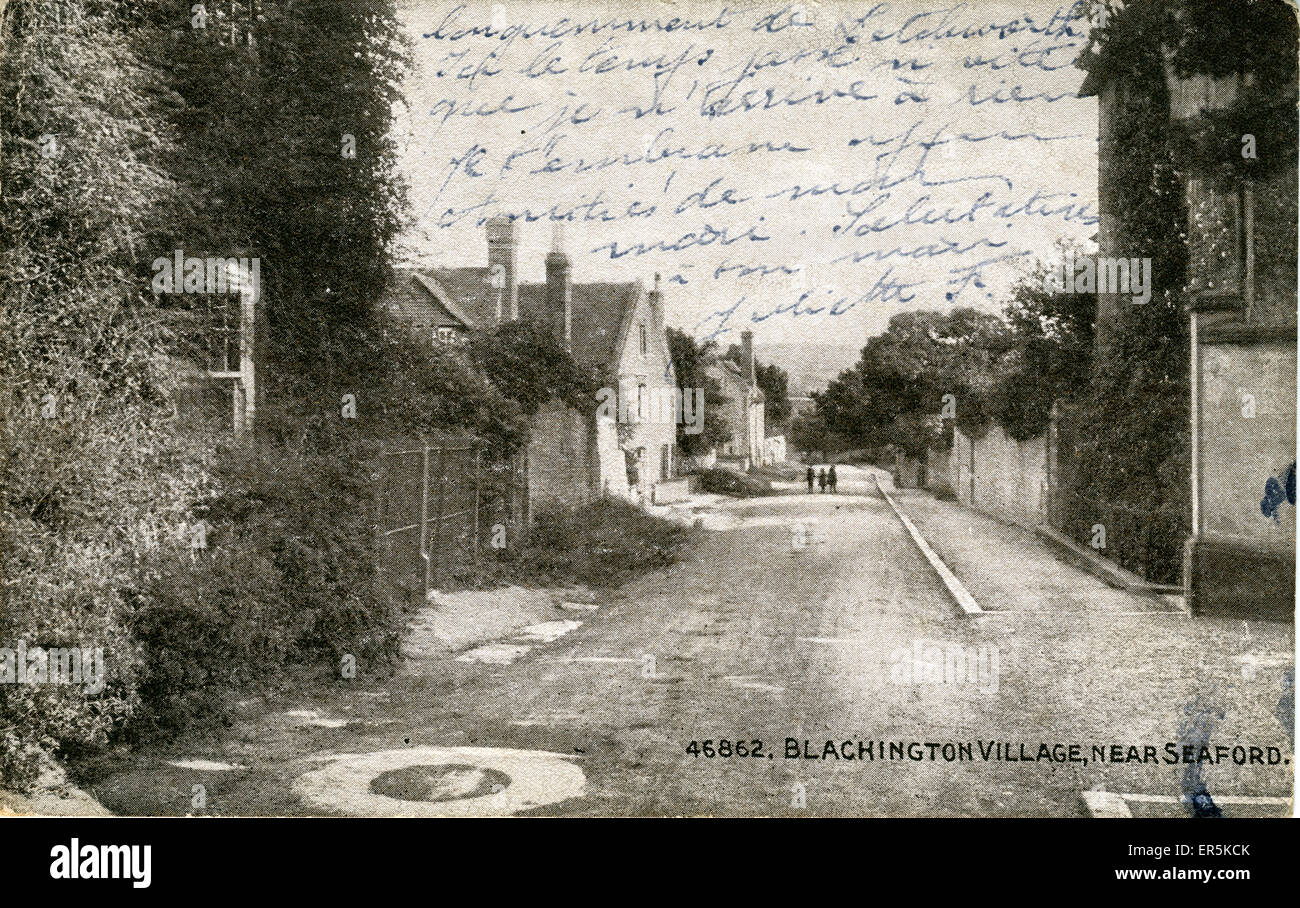 longuement de Letchworth
Ici le temps passe si vite
que je n'arrive à rien
Je t'embrasse
Amitiés de mon
mari. Salutations
à ton mari
Juliette F.
46862. BLACHINGTON VILLAGE, NEAR SEAFORD.
alamy
alamy
Image ID: ER5KCK
www.alamy.com